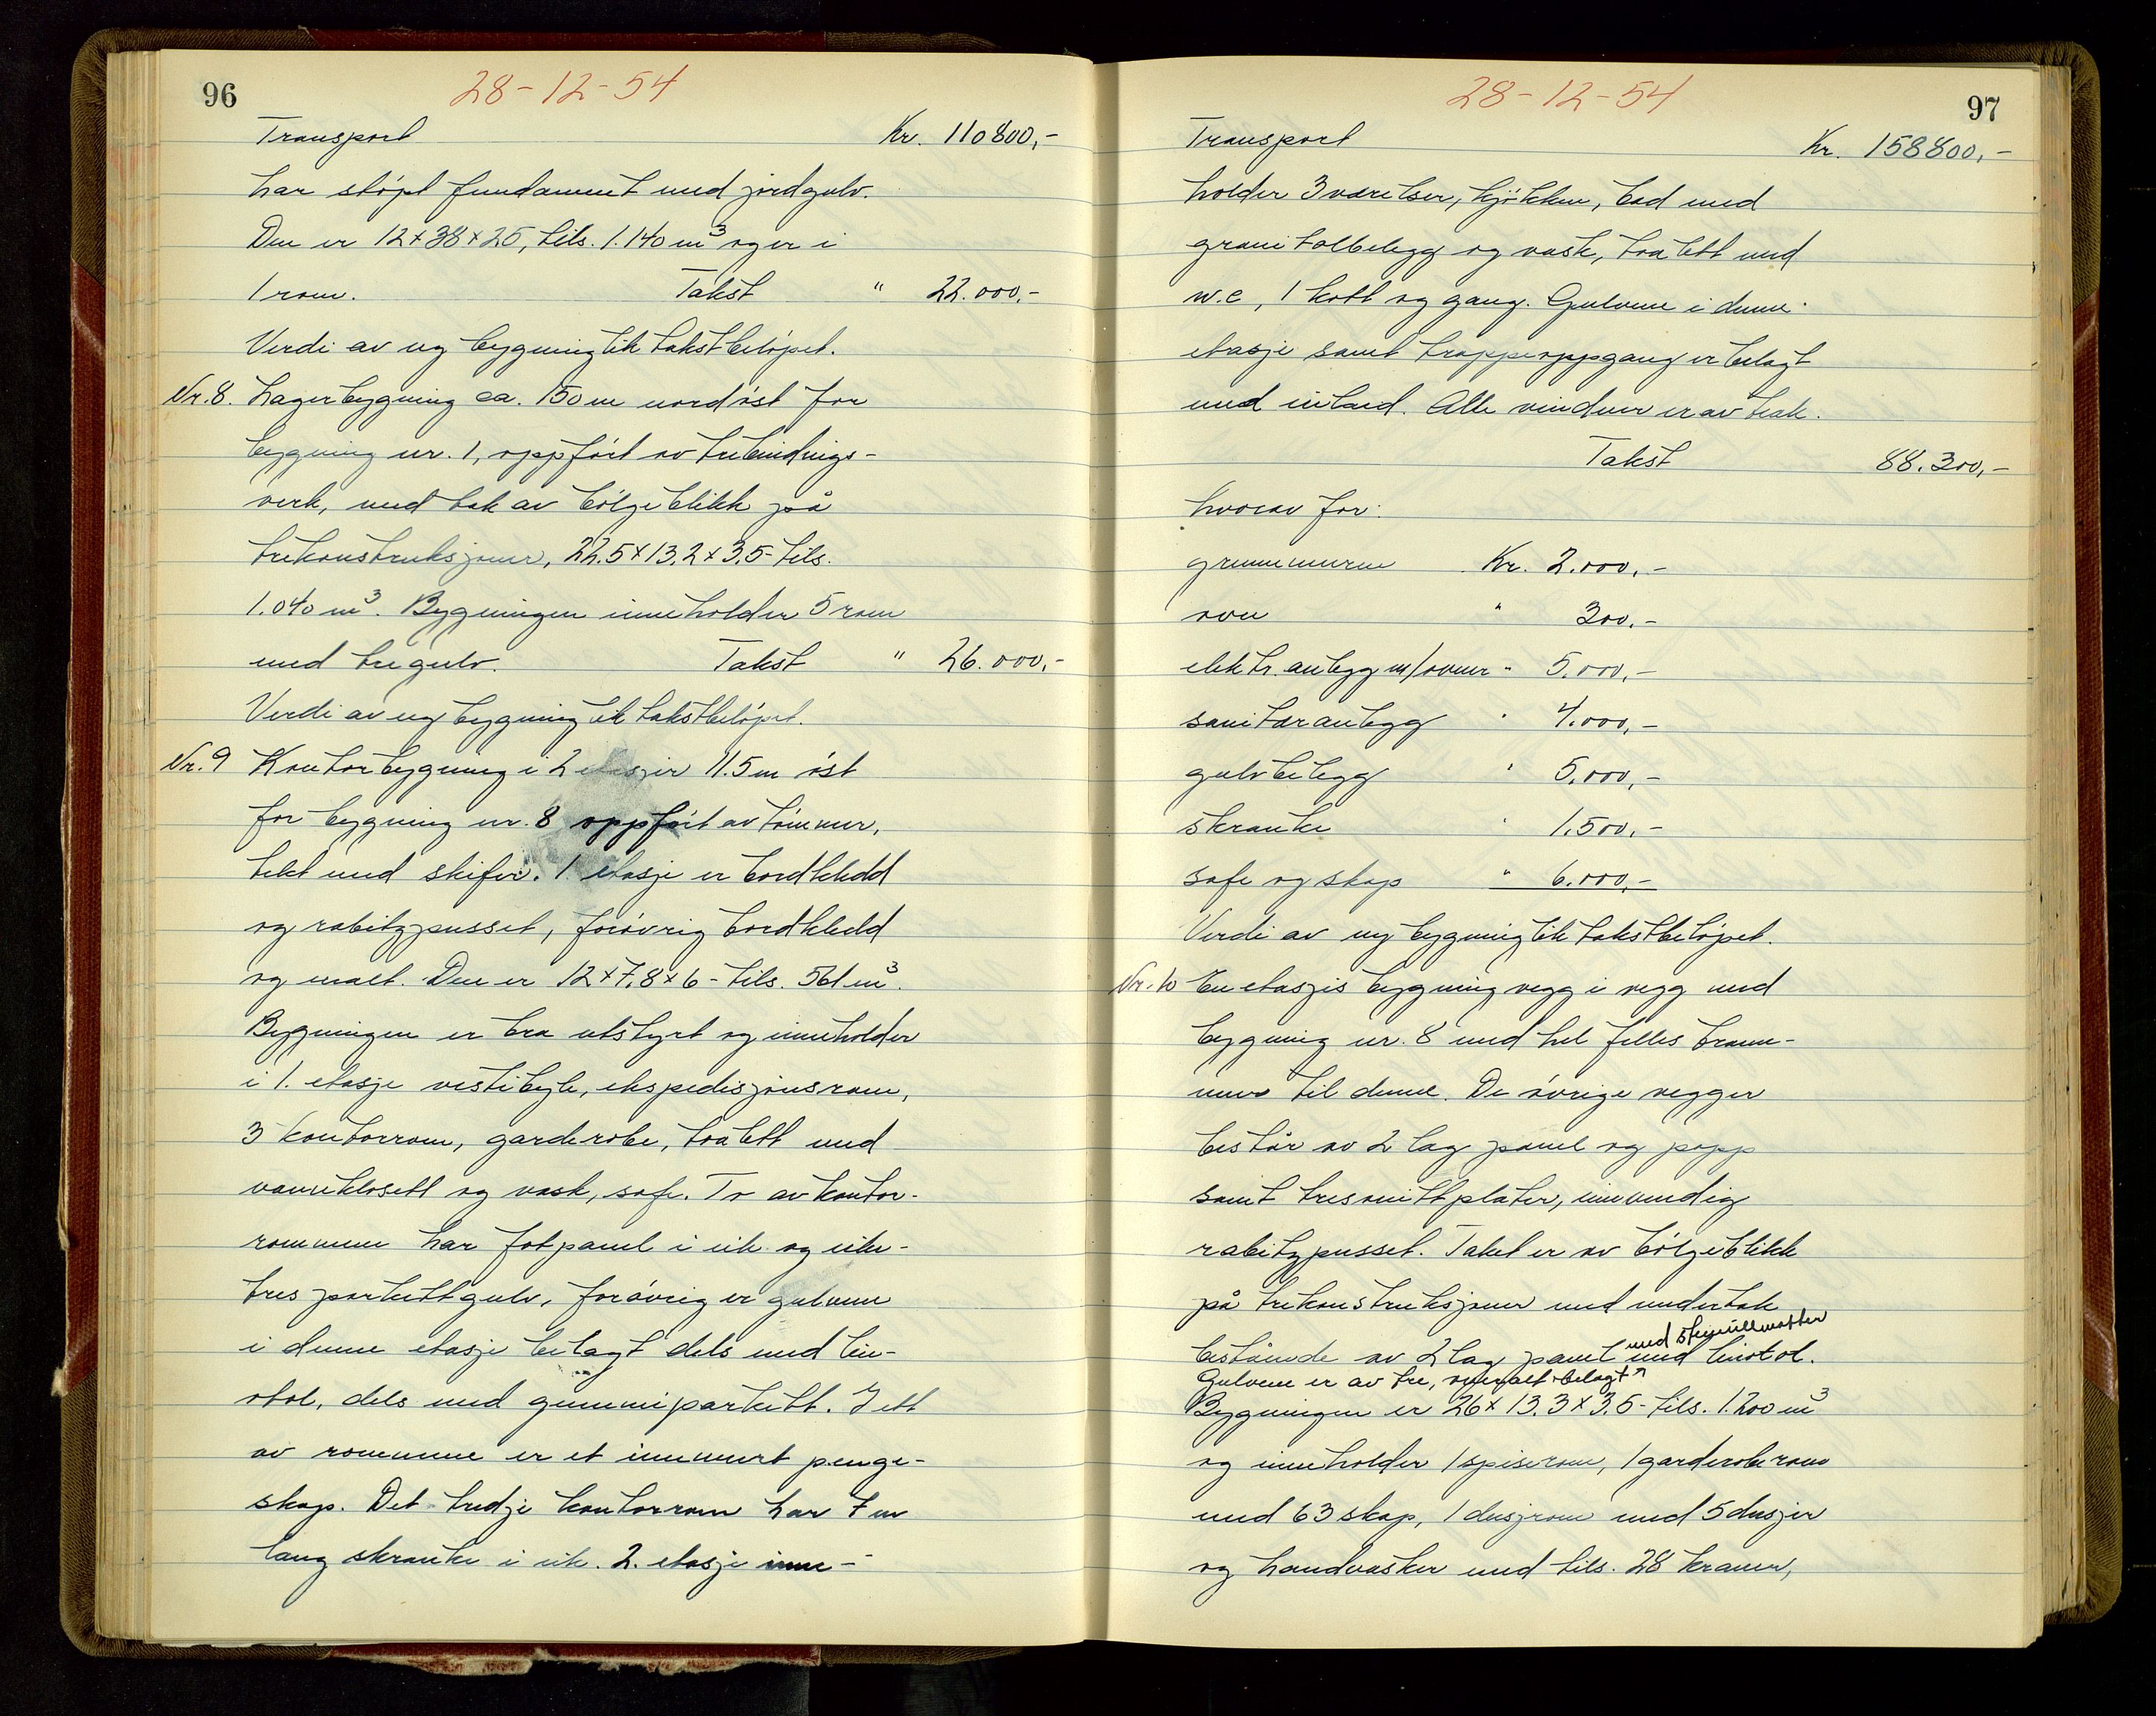 96
28-12-54
Transport Kr. 110800,-
har støpt fundament med jordgulv.
Den er 12×38×25, tils. 1.140 m³ og er i
1 rom. Takst " 22.000,-
Verdi av ny bygning lik takstbeløpet.
Nr. 8. Lagerbygning ca. 150 m nordøst for
bygning nr. 1, oppført av trebindings-
verk, med tak av bølgeblikk på
trekonstruksjoner, 22.5×13.2×3.5- tils.
1.040 m³. Bygningen inneholder 5 rom
med tregulv. Takst " 26.000,-
Verdi av ny bygning lik takstbeløpet.
Nr. 9 Kontorbygning i 2 etasjer 11.5 m øst
for bygning nr. 8 oppført av tømmer,
tekt med skifer. 1. etasje er bordkledd
og rabitzpusset, forøvrig bordkledd
og malt. Den er 12×7.8×6- tils. 561 m³.
Bygningen er bra utstyrt og inneholder
i 1. etasje vestibyle, ekspedisjonsrom,
3 kontorrom, garderobe, toalett med
vannklosett og vask, safe. To av kontor-
rommene har fotpanel i eik og eike-
tres parkettgulv, forøvrig er gulvene
i denne etasje belagt dels med lin-
otol, dels med gummiparkett. I ett
av rommene er et innmurt penge-
skap. Det tredje kontorrom har 7 m
lang skranke i eik. 2. etasje inne-
97
28-12-54
Transport Kr. 158800,-
holder 3 værelser, kjøkken, bad med
granitolbelegg og vask, toalett med
w.c, 1 kott og gang. Gulvene i denne
etasje samt trappeoppgang er belagt
med inlaid. Alle vinduer er av teak.
Takst 88.300,-
hvorav for:
grunnmuren Kr. 2.000,-
ovn " 300.-
elektr. anlegg m/ovner " 5.000,-
sanitæranlegg " 4.000,-
gulvbelegg " 5.000,-
skranke " 1.500,-
safe og skap " 6.000,-
Verdi av ny bygning lik takstbeløpet.
Nr. 10 En etasjes bygning vegg i vegg med
bygning nr. 8 med hel felles brann-
mur til denne. De øvrige vegger
består av 2 lag panel og papp
samt tresonittplater, innvendig
rabitzpusset. Taket er av bølgeblikk
på trekonstruksjoner med undertak
med steinullmatter
bestående av 2 lag panel med linotol.
Gulvene er av tre, overalt belagt
Bygningen er 26×13.3×3.5- tils. 1.200 m³
og inneholder 1 spiserom, 1 garderoberom
med 63 skap, 1 dusjrom med 5 dusjer
og håndvasker med tils. 28 kraner,